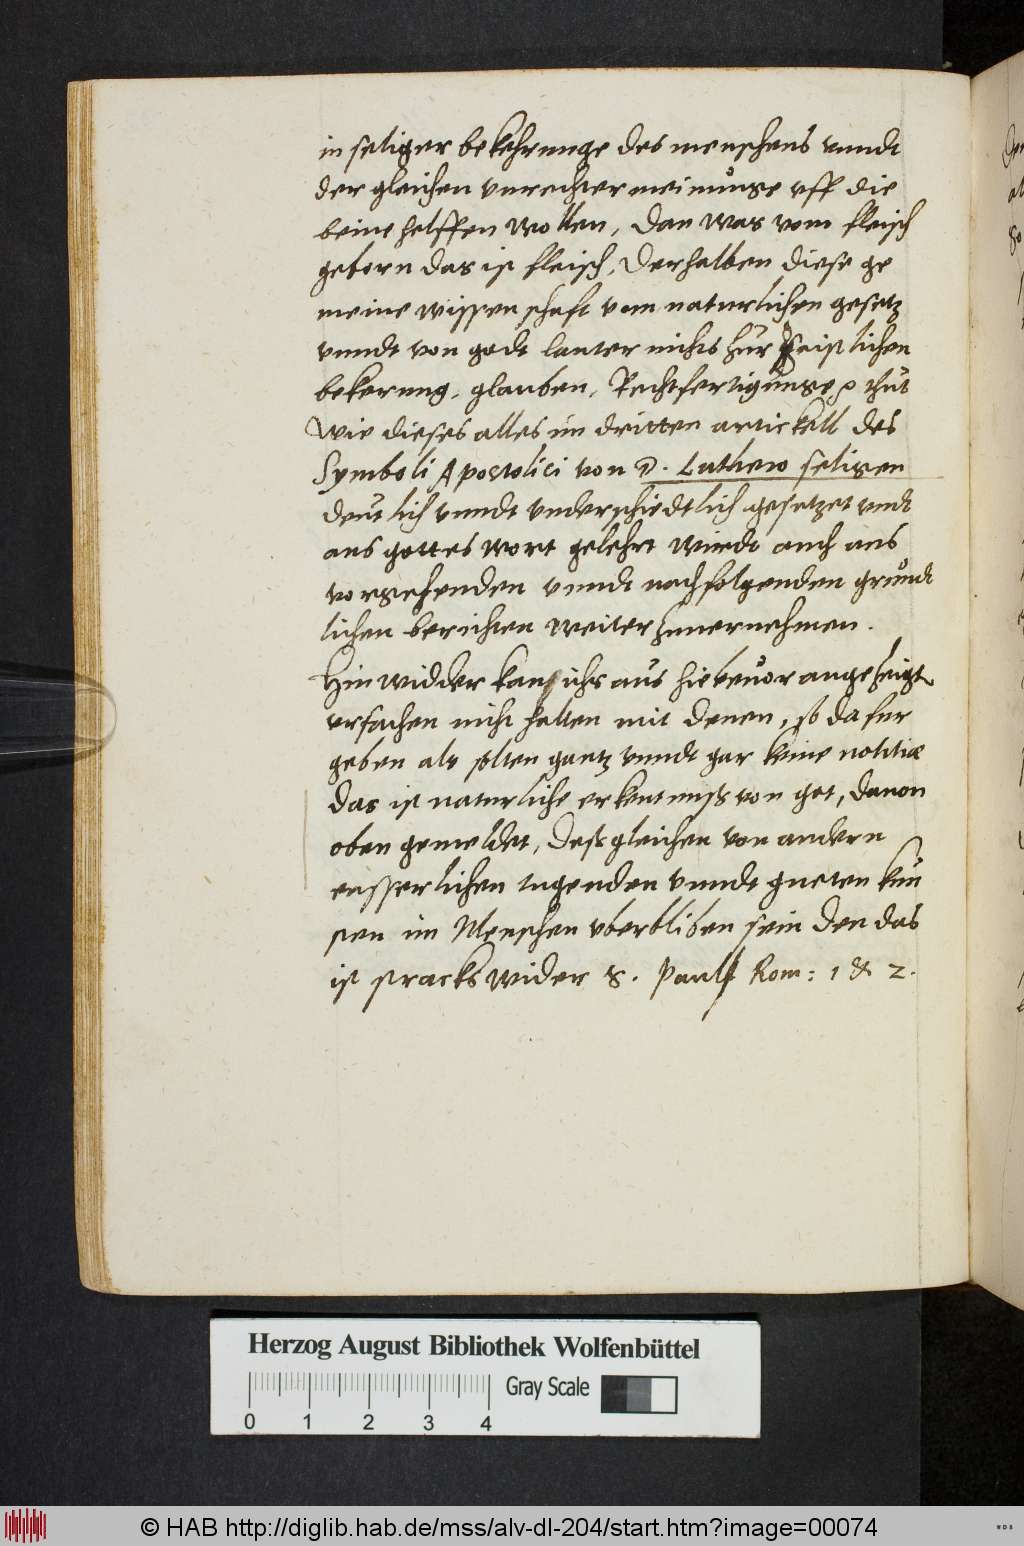 in seliger bekehrunge des menschens vnndt
der gleichen vnrechter meinunge vff die
beine helffen wollen, dan was vom fleisch
geborn das ist fleisch, Derhalben diese ge
meine wissenschaft vom naturlichen gesetz
vnndt von godt lauter nichts zur geistlichen
bekerung, glauben, Rechtfertigunge thut
wie dieses alles im dritten artickell des
Symboli Apostolici von D. Luthero seligen
deutlich vnndt vnderschiedtlich gesetzet vndt
aus gottes wort gelehrt wirdt auch aus
vorgehenden vnndt nachfolgenden grundt
lichen berichten weiter zuuernehmen.
Hin widder kan ichs aus hiebeuor angezeigten
vrsachen nicht halten mit denen, so da fur
geben als solten gantz vnndt gar keine notitiæ
das ist naturliche erkentniss von got, dauon
oben gemeldet, dessgleichen von andern
eusserlichen tugenden vnndt gueten kun
sten im Menschen vberbliben sein den das
ist stracks wider S. Paul Rom: 1 & 2.
Herzog August Bibliothek Wolfenbüttel
Gray Scale
0 1 2 3 4
© HAB http://diglib.hab.de/mss/alv-dl-204/start.htm?image=00074